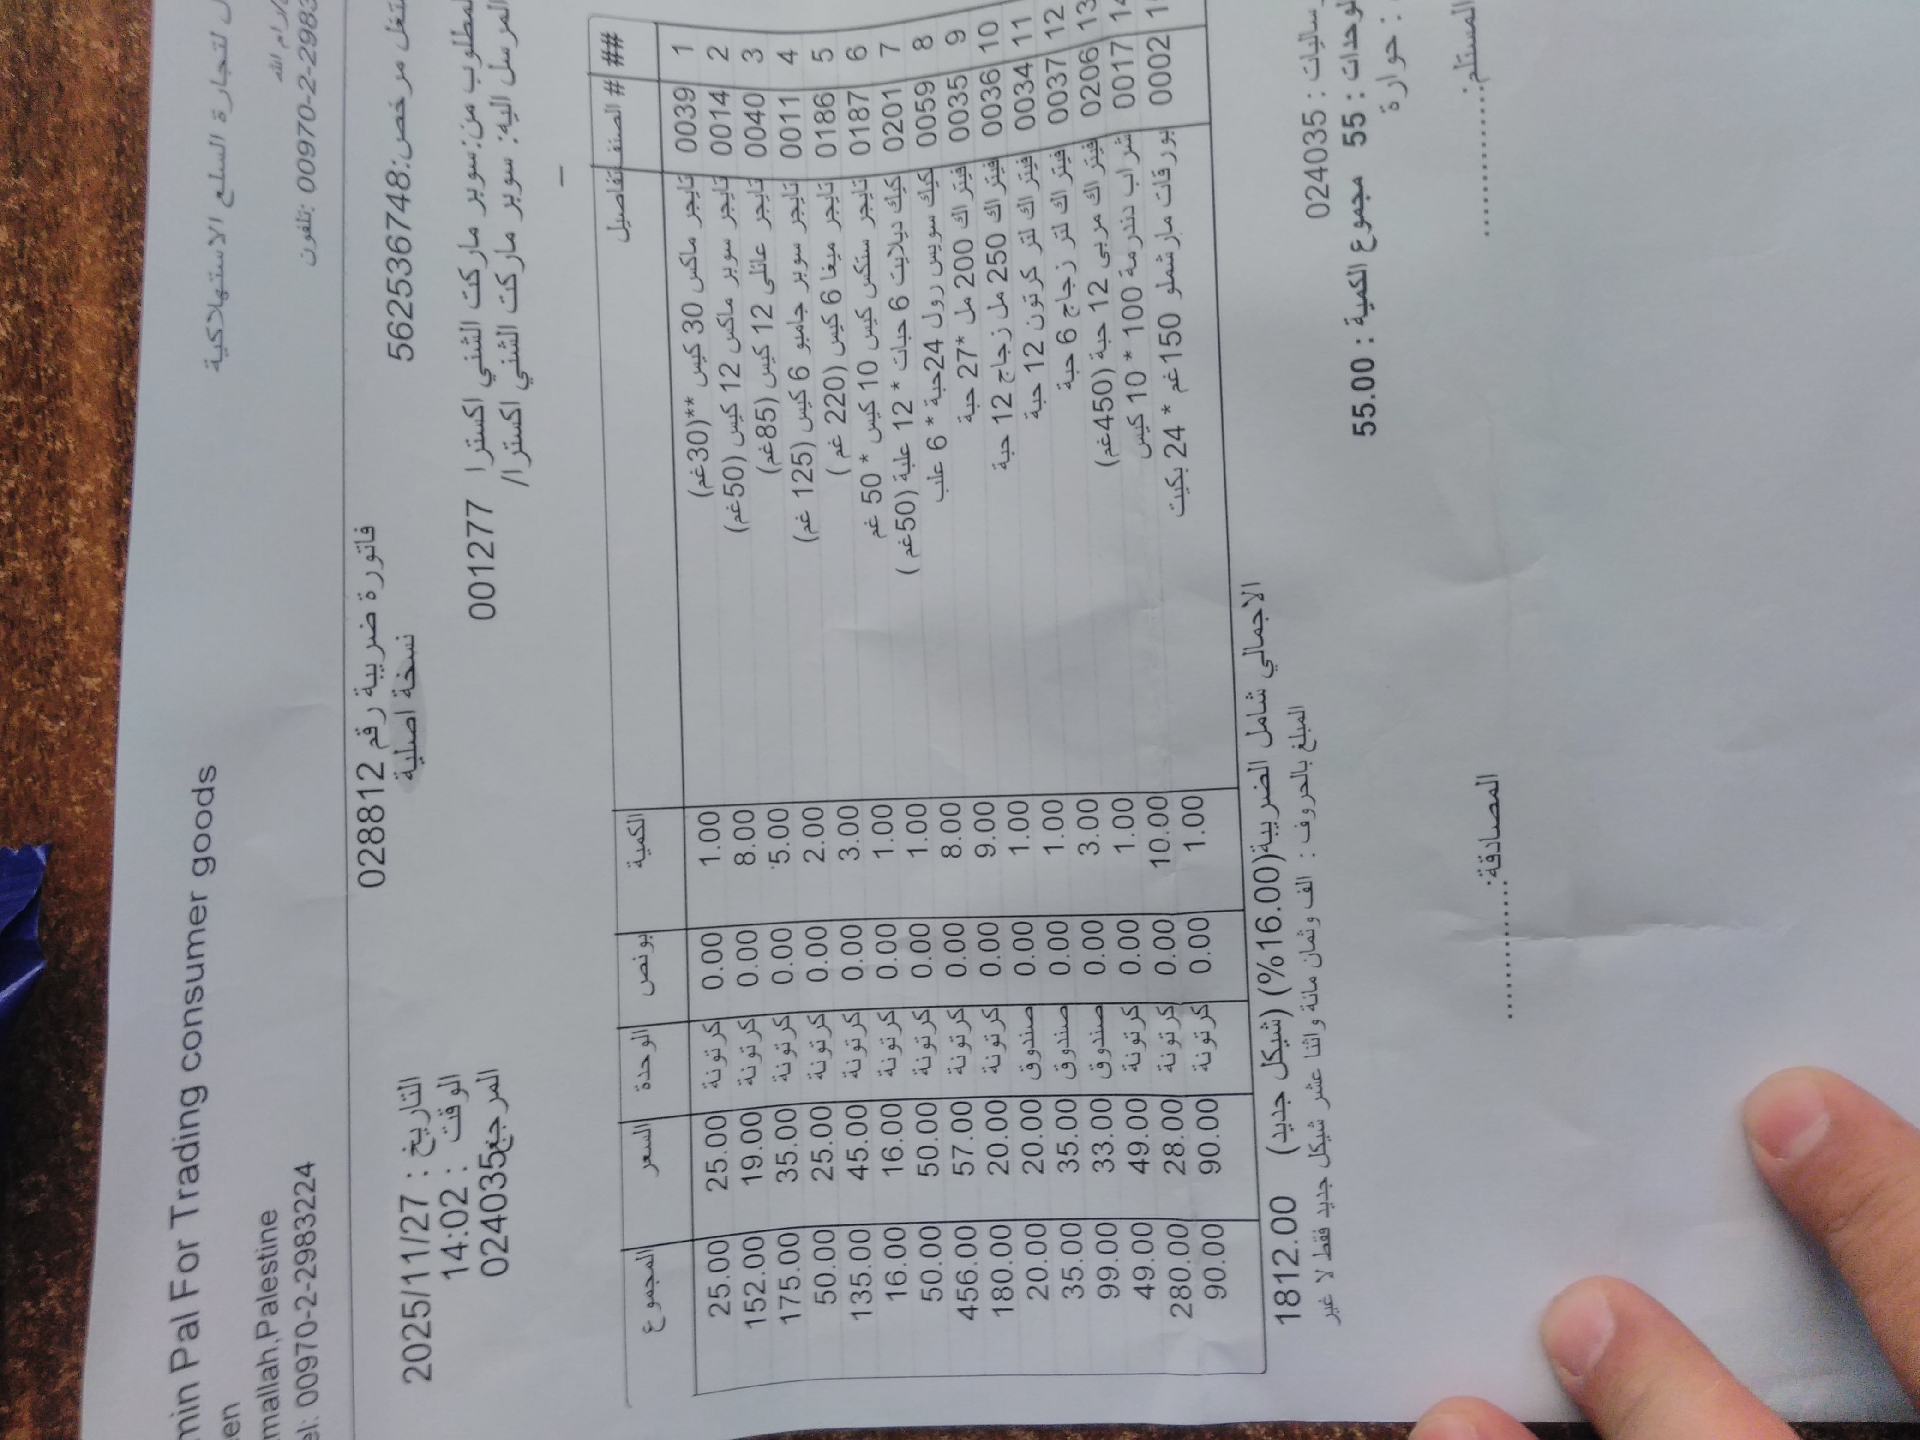 min Pal For Trading consumer goods
ل لتجارة السلع الاستهلاكية
en
mallah,Palestine
رام الله
el: 00970-2-2983224
تلفون: 00970-2-2983
فاتورة ضريبة رقم 028812
نسخة اصلية
مشتغل مرخص:562536748
التاريخ : 2025/11/27
الوقت : 14:02
المرجع024035
المطلوب من:سوبر ماركت الشني اكسترا 001277
المرسل اليه: سوبر ماركت الشني اكسترا/
## الصنف # التفاصيل الكمية بونص الوحدة السعر المجموع
1 0039 تايجر ماكس 30 كيس **(30غم) 1.00 0.00 كرتونة 25.00 25.00
2 0014 تايجر سوبر ماكس 12 كيس (50غم) 8.00 0.00 كرتونة 19.00 152.00
3 0040 تايجر عائلي 12 كيس (85غم) 5.00 0.00 كرتونة 35.00 175.00
4 0011 تايجر سوبر جامبو 6 كيس (125 غم) 2.00 0.00 كرتونة 25.00 50.00
5 0186 تايجر ميغا 6 كيس (220 غم ) 3.00 0.00 كرتونة 45.00 135.00
6 0187 تايجر ستكس كيس 10 كيس * 50 غم 1.00 0.00 كرتونة 16.00 16.00
7 0201 كيك ديلايت 6 حبات * 12 علبة (50غم ) 1.00 0.00 كرتونة 50.00 50.00
8 0059 كيك سويس رول 24حبة * 6 علب 8.00 0.00 كرتونة 57.00 456.00
9 0035 فيتراك 200 مل *27 حبة 9.00 0.00 كرتونة 20.00 180.00
10 0036 فيتراك 250 مل زجاج 12 حبة 1.00 0.00 صندوق 20.00 20.00
11 0034 فيتراك لتر كرتون 12 حبة 1.00 0.00 صندوق 35.00 35.00
12 0037 فيتراك لتر زجاج 6 حبة 3.00 0.00 صندوق 33.00 99.00
13 0206 فيتراك مربى 12 حبة (450غم) 1.00 0.00 كرتونة 49.00 49.00
14 0017 شراب دندرمة 100 * 10 كيس 10.00 0.00 كرتونة 28.00 280.00
1 0002 بورقات مارشملو 150غم * 24 بكيت 1.00 0.00 كرتونة 90.00 90.00
الاجمالي شامل الضريبة(16.00%) (شيكل جديد) 1812.00
المبلغ بالحروف : الف وثمان مائة واثنا عشر شيكل جديد فقط لا غير
رساليات : 024035
الوحدات : 55 مجموع الكمية : 55.00
: حوارة
المستلم:..............
المصادقة:..............